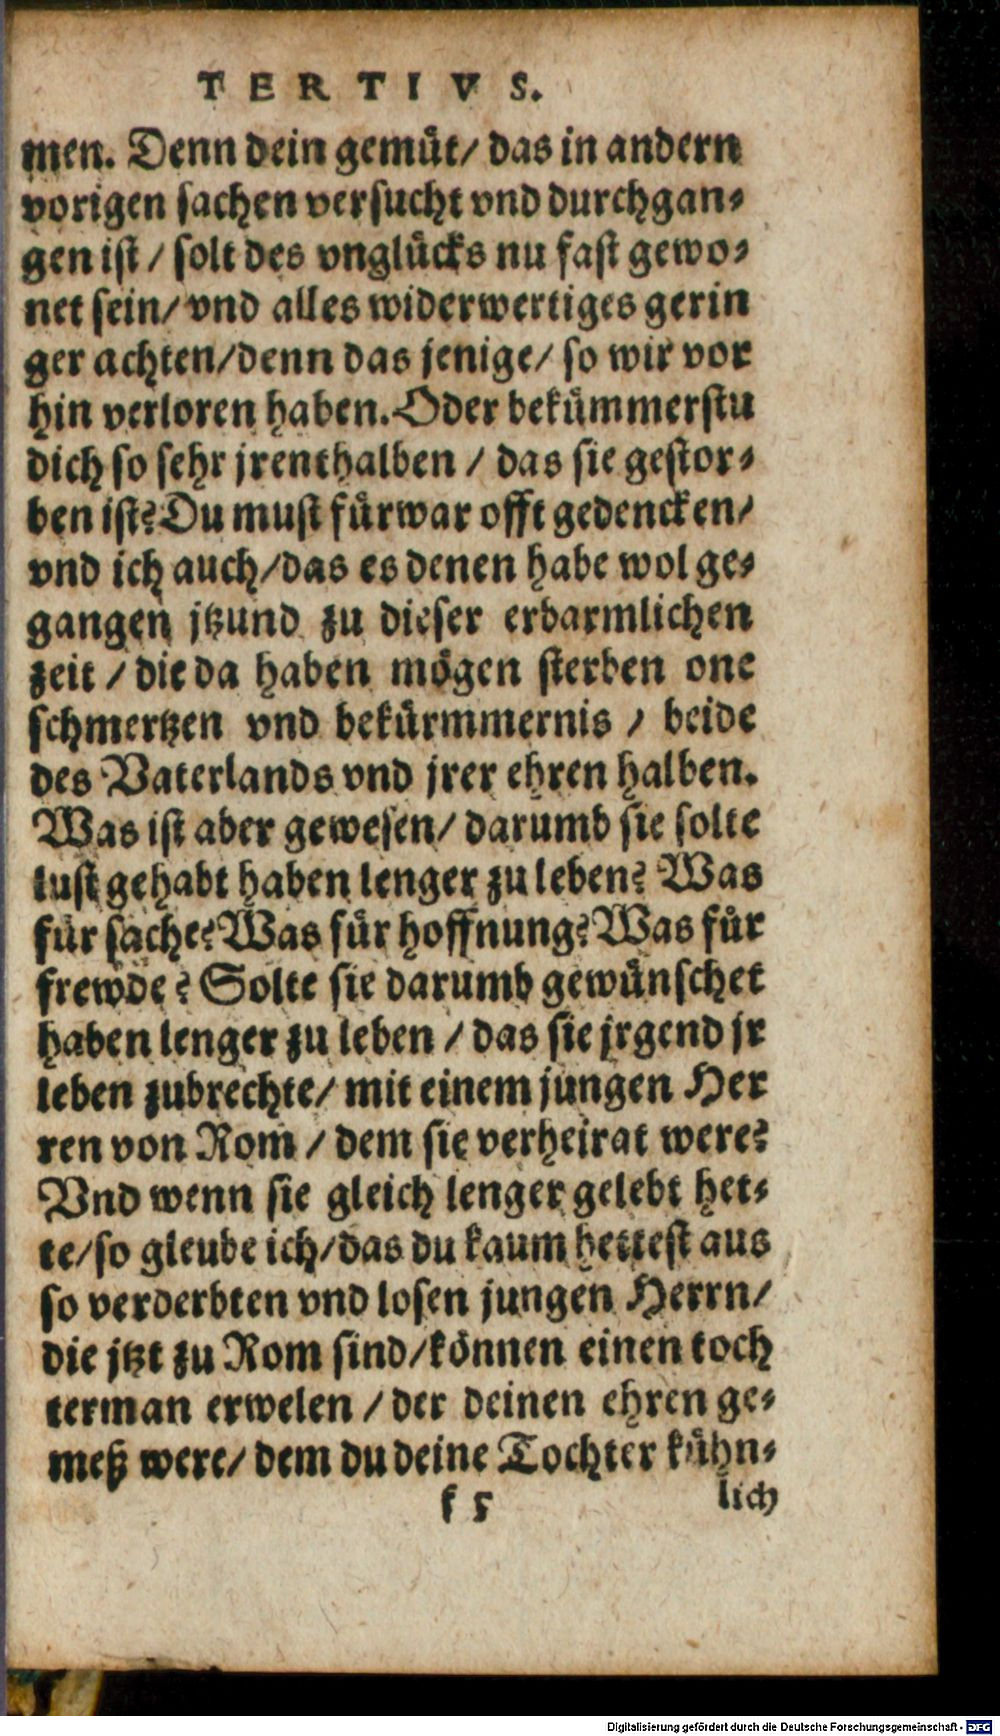 TERTIVS.
men. Denn dein gemüt/ das in andern
vorigen sachen versucht vnd durchgan-
gen ist / solt des vnglücks nu fast gewo-
net sein/ vnd alles widerwertiges gerin
ger achten/denn das jenige/ so wir vor
hin verloren haben. Oder bekümmerstu
dich so sehr jrenthalben / das sie gestor-
ben ist? Du must fürwar offt gedencken/
vnd ich auch/das es denen habe wol ge-
gangen jtzund zu dieser erbarmlichen
zeit / die da haben mögen sterben one
schmertzen vnd bekürmmernis / beide
des Vaterlands vnd jrer ehren halben.
Was ist aber gewesen/ darumb sie solte
lust gehabt haben lenger zu leben? Was
für sache? Was für hoffnung? Was für
frewde? Solte sie darumb gewünschet
haben lenger zu leben / das sie jrgend jr
leben zubrechte/ mit einem jungen Her
ren von Rom / dem sie verheirat were?
Vnd wenn sie gleich lenger gelebt het-
te/so gleube ich/das du kaum hettest aus
so verderbten vnd losen jungen Herrn/
die jtzt zu Rom sind/können einen toch
terman erwelen / der deinen ehren ge-
meß were/ dem du deine Tochter kühn-
k 5 lich
Digitalisierung gefördert durch die Deutsche Forschungsgemeinschaft - DFG